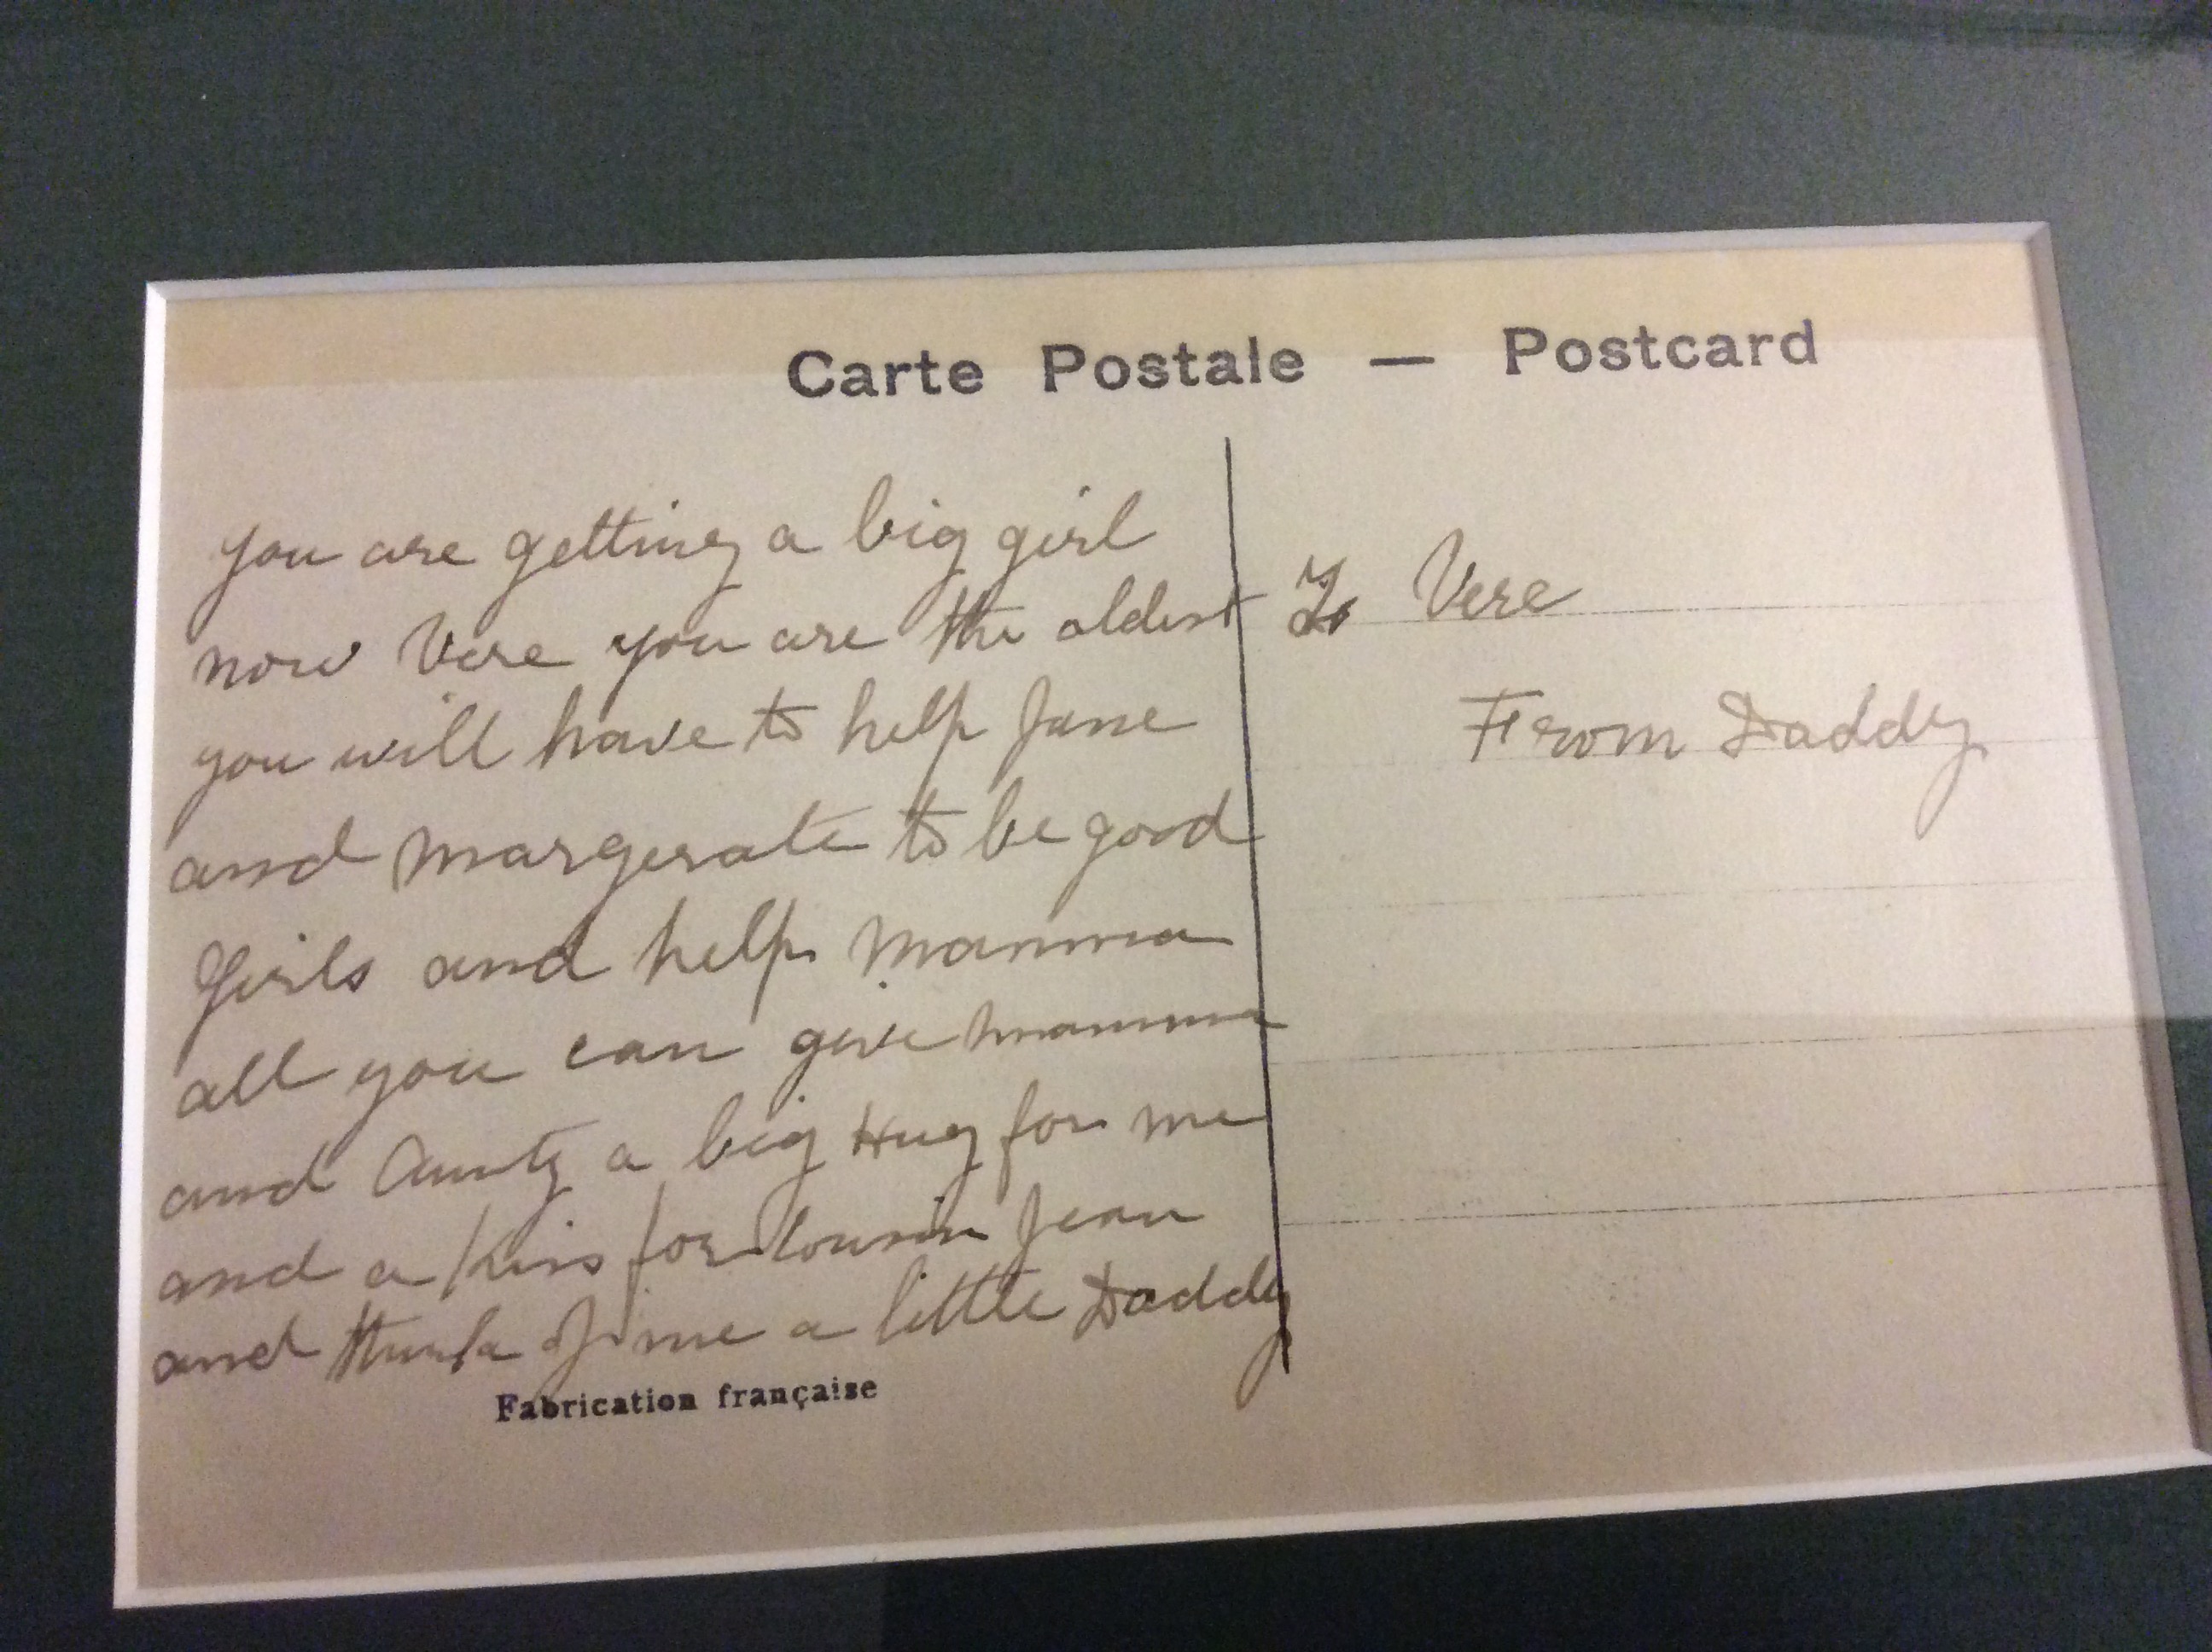 Carte Postale — Postcard
you are getting a big girl
now Vere you are the oldest
you will have to help Jane
and margerate to be good
Girls and help mamma
all you can give mamma
and Aunty a big Hug for me
and a kiss for Cousin Jean
and think of me a little Daddy
Fabrication française
To Vere
From Daddy